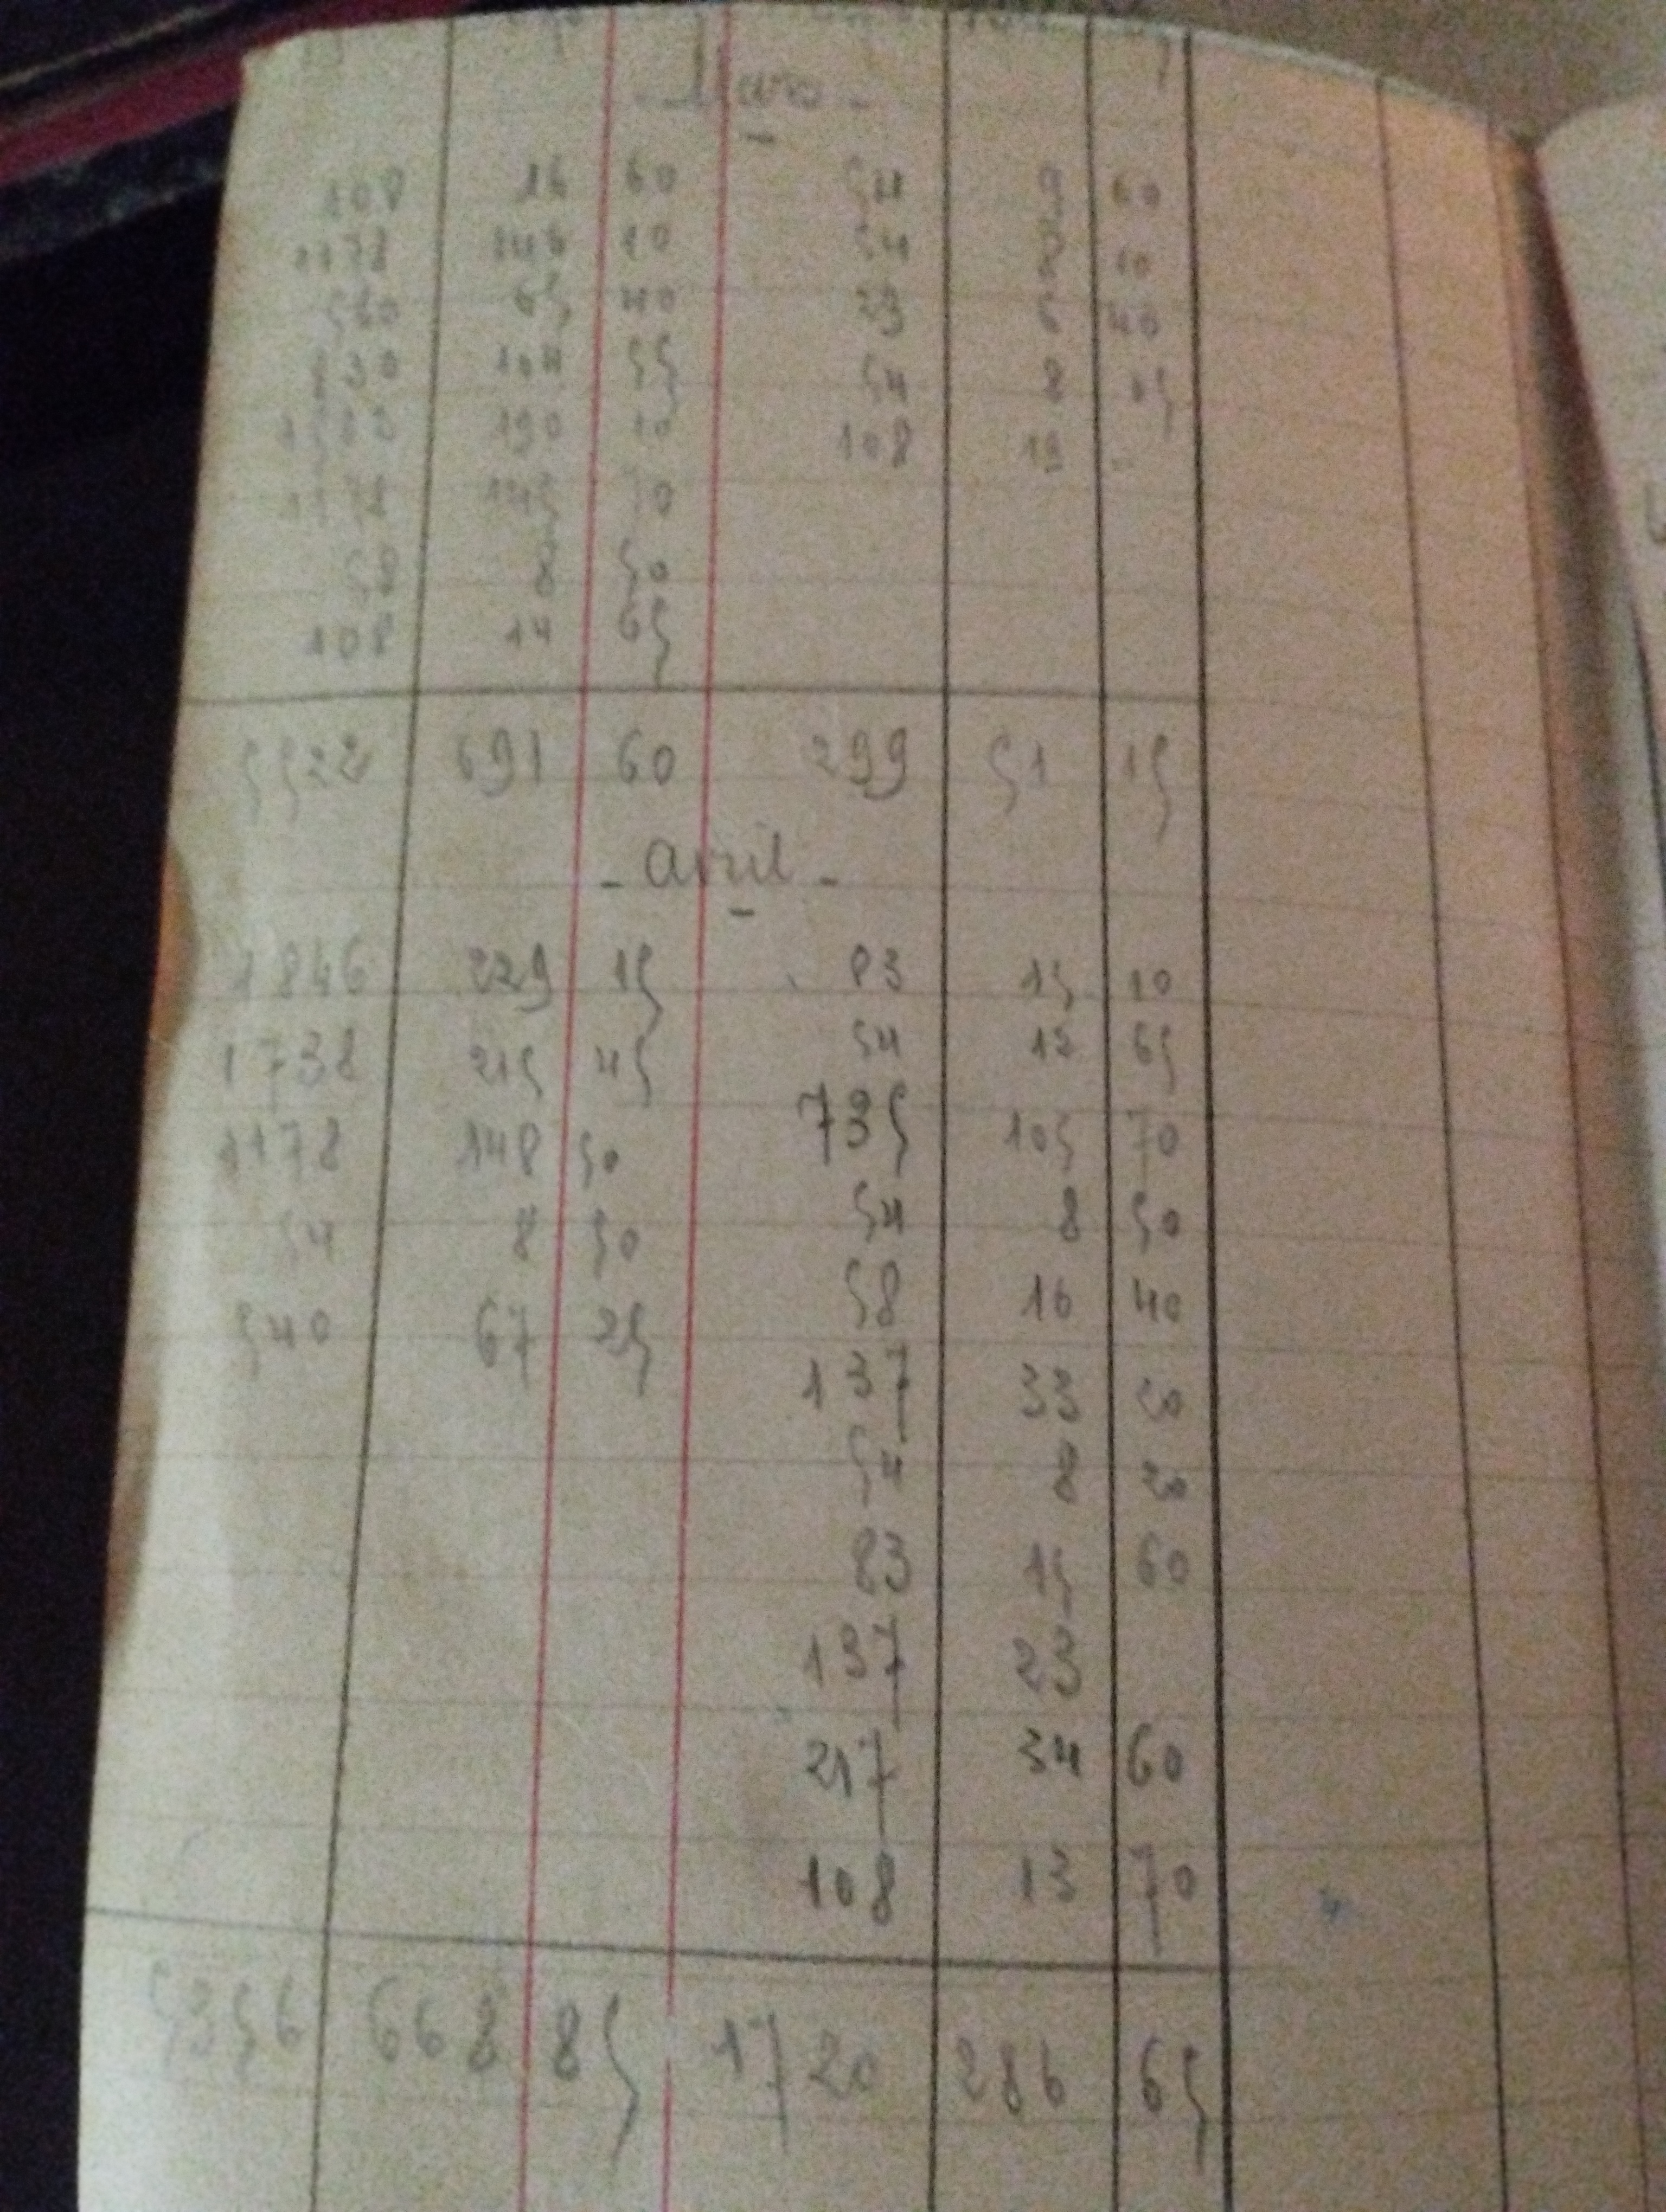 - Mars -
108 16 60 54 9 60
1178 146 10 54 8 10
580 65 40 29 6 40
830 104 55 54 8 05
190 10 108 19 -
1178 145 70
58 8 50
108 14 65
5522 691 60 299 51 15
- avril -
1846 229 15 83 15 10
1738 215 45 54 12 65
1178 148 50 735 105 70
54 8 50 54 8 50
540 67 25 58 16 40
137 33 20
54 8 20
83 15 60
137 23
217 34 60
108 13 70
5356 668 85 1720 286 65